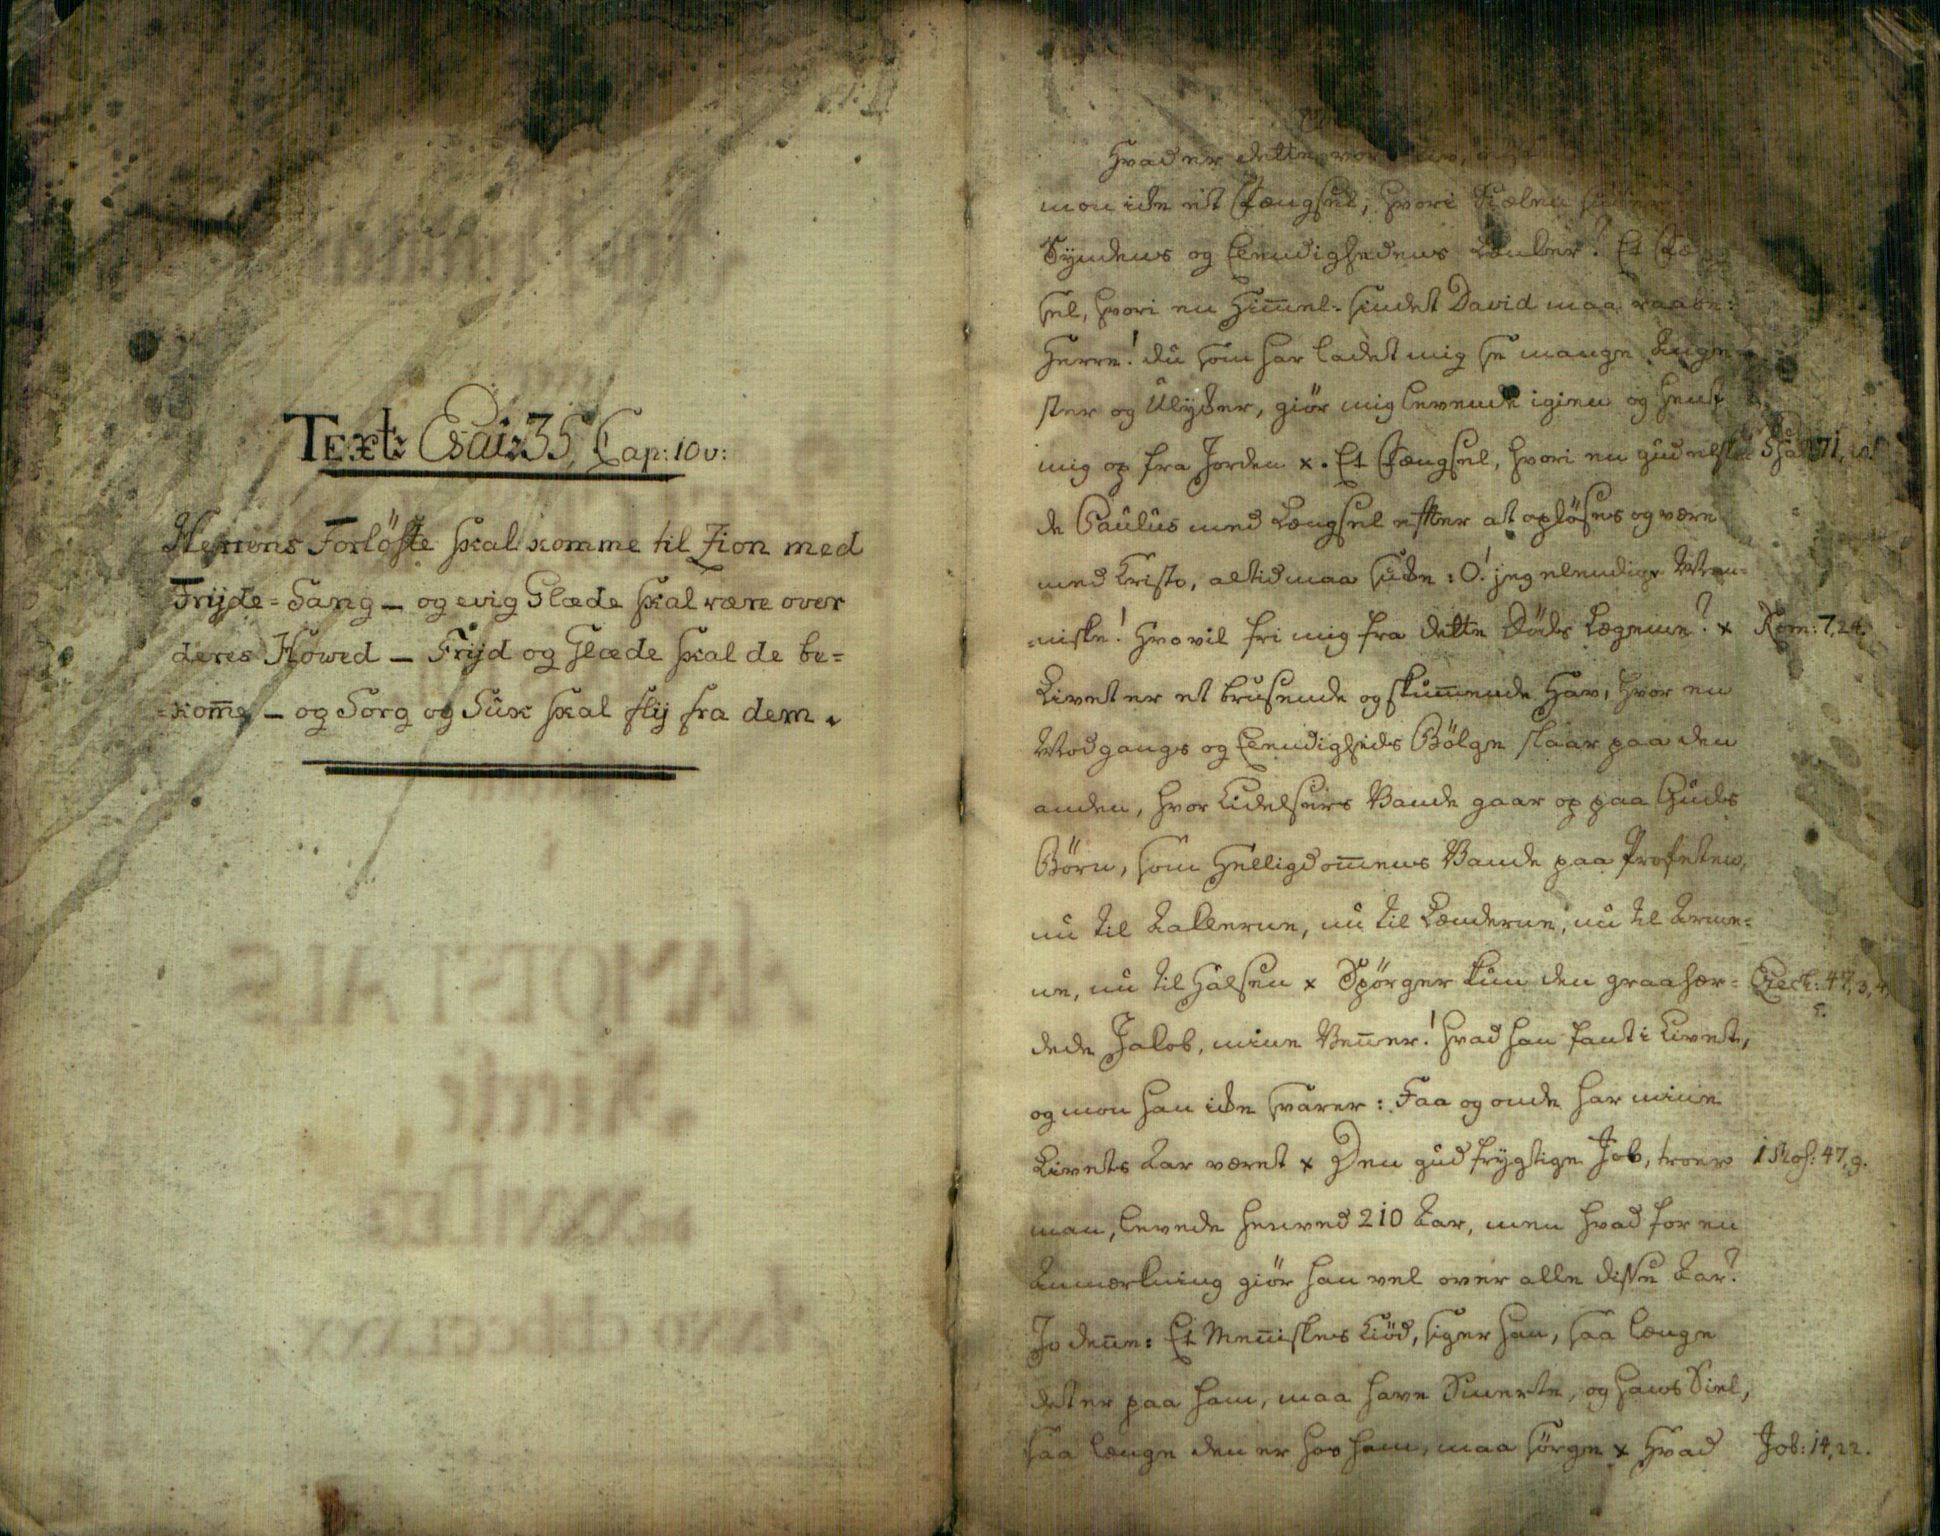 Text: Esai: 35, Cap: 10 v:
Herrens Forlöste skal komme til Zion med
Fryde = Sang — og evig Glæde skal være over
deres Howed — Fryd og Glæde skal de be=
=kom̅e — og Sorg og Suk skal fly fra dem.
Hvad er dette vor
mon ikke eet Fængsel, hvori Siælen
Syndens og Elendighedens Lænker? Et Fæ
sel, hvori en Him̅el-sindet David maa raabe:
Herre! du som har ladet mig see mange Ange
ster og Ulyker, giör mig levende igien og hent
mig op fra Jorden x. Et Fængsel, hvori en gudelske Psal: 71,
de Paulus med Længsel efter at oplöses og være
med Cristo, altid maa sukke: O! jeg elendige Men=
=niske! Hvo vil fri mig fra dette Döds Legeme? x Rom: 7,24.
Livet er et brusende og skum̅ende Hav, hvor en
Modgangs og Elendigheds Bölge slaar paa den
anden, hvor Lidelsers Vande gaar op paa Guds
Börn, som Helligdom̅ens Vande paa Profeten,
nu til Anklerne, nu til Lænderne, nu til Arme=
ne, nu til Halsen x Spörger kun den graahær= Ezech: 47, 3, 4,
5.
dede Jakob, mine Ven̅er! hvad han fant i Livet,
og mon han ikke svarer: Faa og onde har mine
Livets Aar været x Den gudfrygtige Job, troer 1 Mos: 47, 9.
man, levede henved 210 Aar, men hvad for en
Anmærkning giör han vel over alle disse Aar?
Jo den̅e: Et Men̅iskes Kiöd, siger han, saa længe
det er paa ham, maa have Smerte, og hans Siel,
saa længe den er hos ham, maa sörge x Hvad Job: 14, 22.